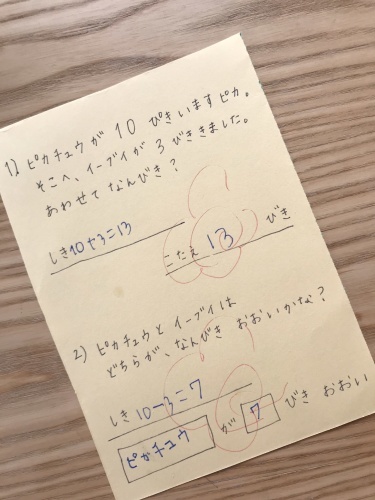 1) ピカチュウが 10 ぴきいますピカ。
そこへ、イーブイが 3 びききました。
あわせて なんびき?
しき10+3=13
こたえ 13 びき
2) ピカチュウと イーブイは
どちらが、なんびき おおいかな?
しき 10-3=7
ピカチュウ が 7 びき おおい